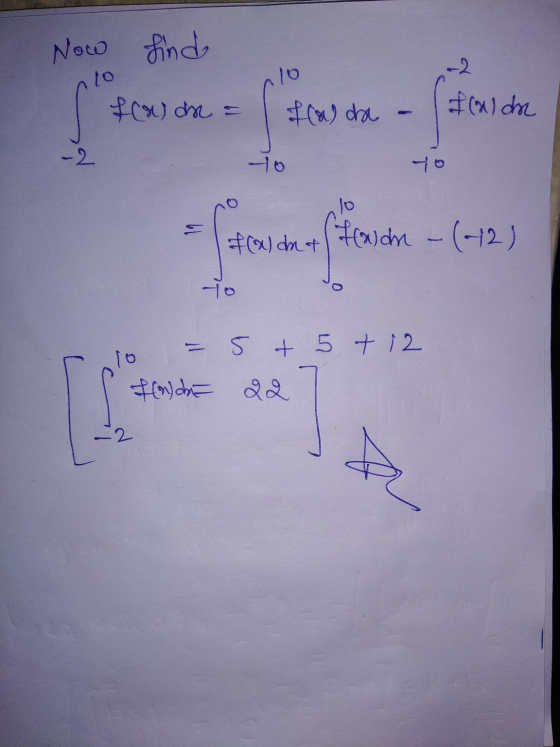 Now find
∫_{-2}^{10} f(x) dx = ∫_{-10}^{10} f(x) dx - ∫_{-10}^{-2} f(x) dx
= ∫_{-10}^{0} f(x) dx + ∫_{0}^{10} f(x) dx - (-12)
= 5 + 5 + 12
[ ∫_{-2}^{10} f(x) dx = 22 ]